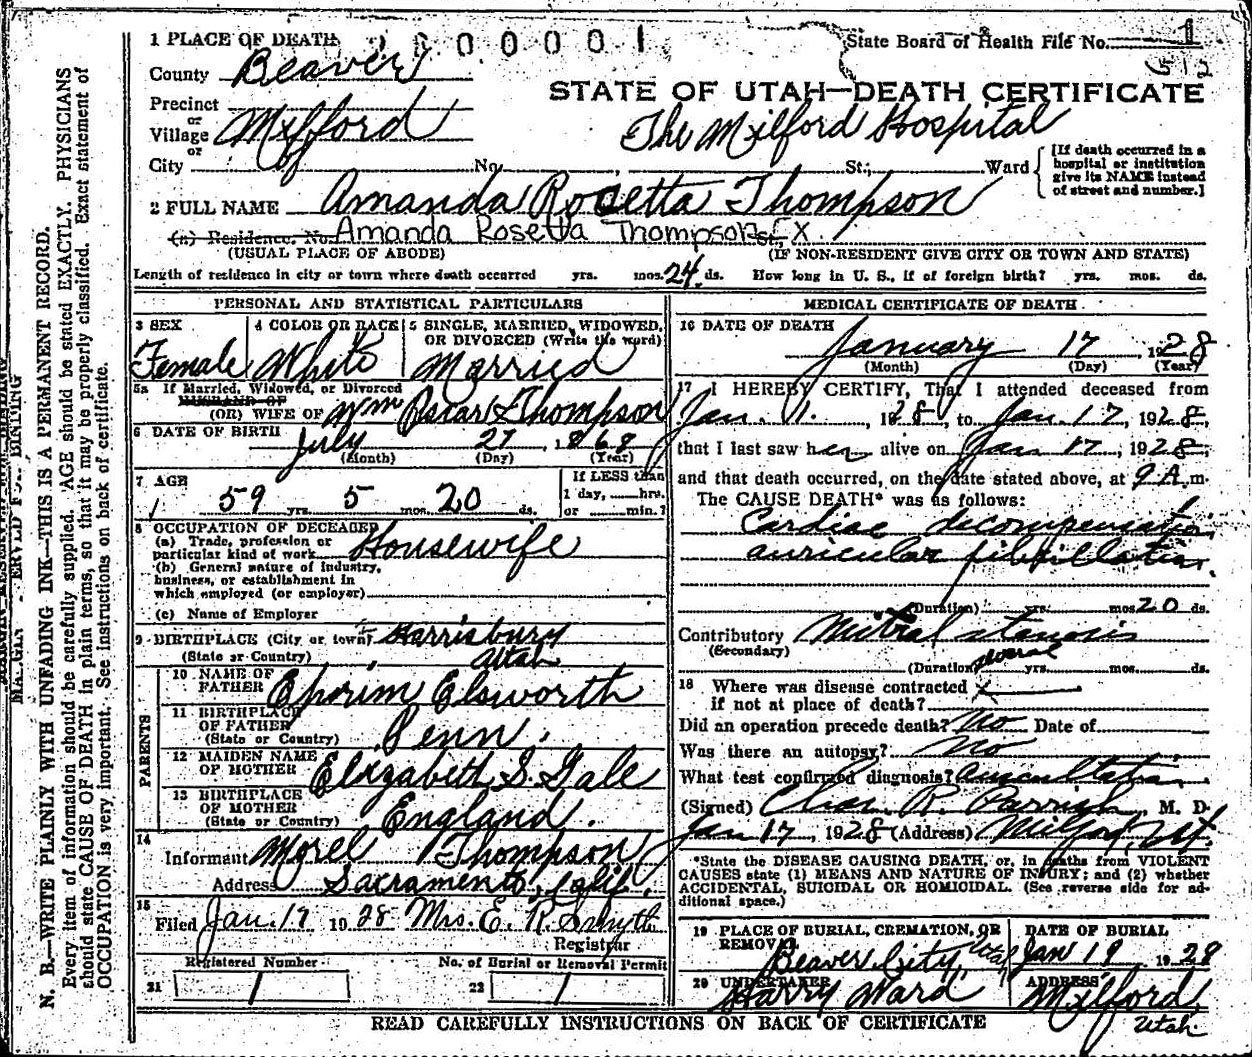 1 PLACE OF DEATH 000001 State Board of Health File No. 1
County Beaver
512
STATE OF UTAH—DEATH CERTIFICATE
Precinct
or
Village Milford
The Milford Hospital
or
City No. St.; Ward
[If death occurred in a
hospital or institution
give its NAME instead
of street and number.]
2 FULL NAME Amanda Rosetta Thompson
(a) Residence. No. Amanda Rosetta Thompson St. EX.
(USUAL PLACE OF ABODE) (IF NON-RESIDENT GIVE CITY OR TOWN AND STATE)
Length of residence in city or town where death occurred yrs. mos. 24 ds. How long in U. S., if of foreign birth? yrs. mos. ds.
PERSONAL AND STATISTICAL PARTICULARS
3 SEX
Female
4 COLOR OR RACE
White
5 SINGLE, MARRIED, WIDOWED,
OR DIVORCED (Write the word)
Married
5a If Married, Widowed, or Divorced
HUSBAND OF
(OR) WIFE OF Wm Oscar Thompson
6 DATE OF BIRTH July 27, 1868
(Month) (Day) (Year)
7 AGE
59 yrs. 5 mos. 20 ds.
If LESS than
1 day, hrs.
or min.?
8 OCCUPATION OF DECEASED
(a) Trade, profession or
particular kind of work Housewife
(b) General nature of industry,
business, or establishment in
which employed (or employer)
(c) Name of Employer
9 BIRTHPLACE (City or town) Harrisburg
(State or Country) Utah
PARENTS
10 NAME OF
FATHER Ephrim Elsworth
11 BIRTHPLACE
OF FATHER
(State or Country) Penn.
12 MAIDEN NAME
OF MOTHER Elizabeth S. Gale
13 BIRTHPLACE
OF MOTHER
(State or Country) England.
14
Informant Morel Thompson
Address Sacramento, Calif.
15
Filed Jan. 17 1928 Mrs. E. R. Smyth
Registrar
Registered Number No. of Burial or Removal Permit
21 1 22 1
MEDICAL CERTIFICATE OF DEATH
16 DATE OF DEATH
January 17, 1928
(Month) (Day) (Year)
17 I HEREBY CERTIFY, That I attended deceased from
Jan. 1., 1928, to Jan. 17, 1928,
that I last saw her alive on Jan 17, 1928,
and that death occurred, on the date stated above, at 9 A.m.
The CAUSE DEATH* was as follows:
Cardiac decompensation
auricular fibrillation.
(Duration) yrs. mos. 20 ds.
Contributory Mitral stenosis
(Secondary)
(Duration) several yrs. mos. ds.
18 Where was disease contracted
if not at place of death?
Did an operation precede death? No Date of
Was there an autopsy? No
What test confirmed diagnosis? Auscultation
(Signed) Chas. R. Parrish M. D.
Jan 17, 1928 (Address) Milford, Ut.
*State the DISEASE CAUSING DEATH, or, in deaths from VIOLENT
CAUSES state (1) MEANS AND NATURE OF INJURY; and (2) whether
ACCIDENTAL, SUICIDAL OR HOMICIDAL. (See reverse side for ad-
ditional space.)
19 PLACE OF BURIAL, CREMATION, OR
REMOVAL
Beaver City, Utah
DATE OF BURIAL
Jan 19 1928
20 UNDERTAKER
Harry Ward
ADDRESS
Milford,
Utah
READ CAREFULLY INSTRUCTIONS ON BACK OF CERTIFICATE
N. B.—WRITE PLAINLY WITH UNFADING INK—THIS IS A PERMANENT RECORD.
Every item of information should be carefully supplied. AGE should be stated EXACTLY. PHYSICIANS
should state CAUSE OF DEATH in plain terms, so that it may be properly classified. Exact statement of
OCCUPATION is very important. See instructions on back of certificate.